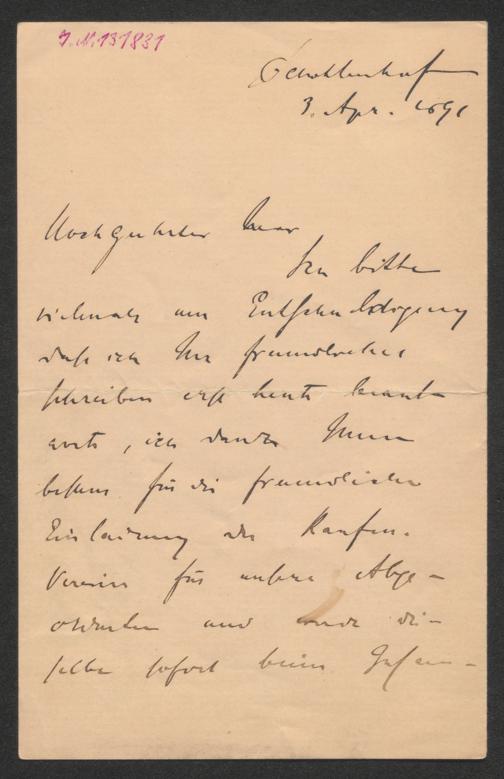 J.N. 131831
Schottenhof
3. Apr. 1891
Hochgeehrter Herr
Ich bitte
vielmals um Entschuldigung
daß ich Ihr freundliches
Schreiben erst heute beant-
worte, ich danke Ihnen
bestens für die freundliche
Einladung des Kaufm.
Vereins für unsere Abge-
ordneten und werde die-
selbe sofort beim